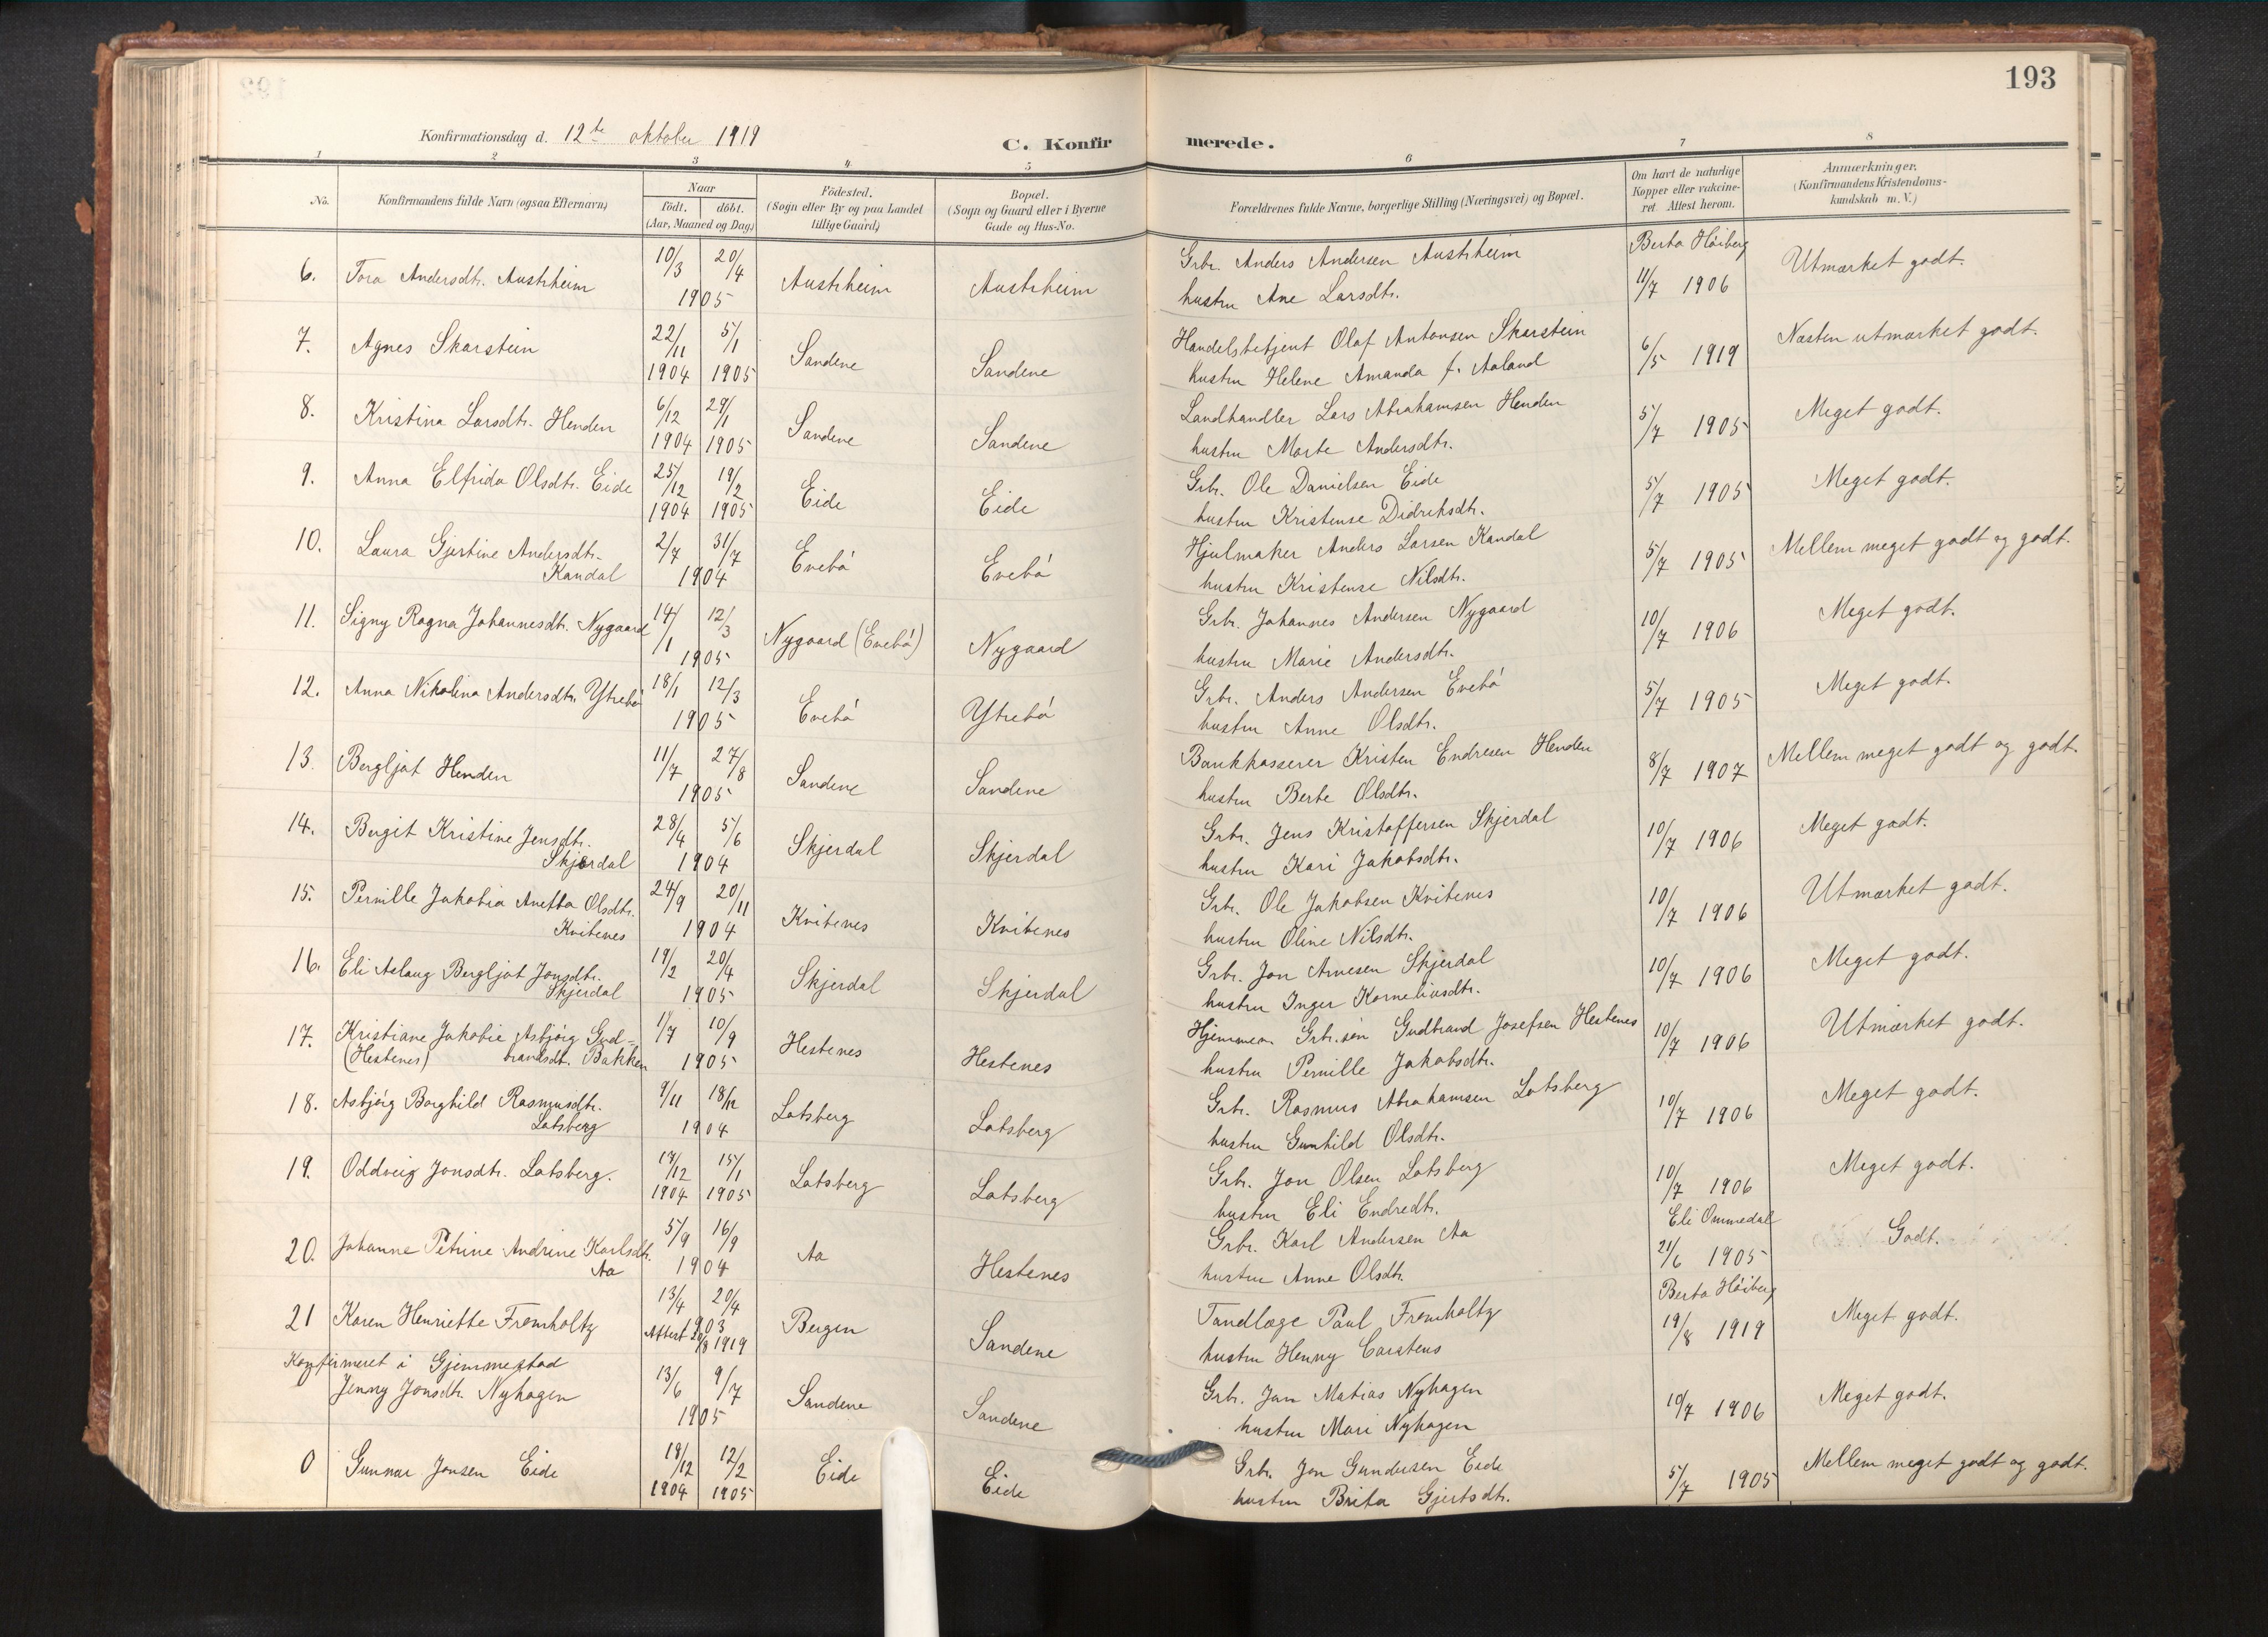 193
Konfirmationsdag d. 12te oktober 1919 C. Konfir merede.
1 2 3 4 5 6 7 8
No. Konfirmandens fulde Navn (ogsaa Efternavn) Naar født. døbt. (Aar, Maaned og Dag) Födested. (Sogn eller By og paa Landet tillige Gaard) Bopæl. (Sogn og Gaard eller i Byerne Gade og Hus-No. Forældrenes fulde Navne, borgerlige Stilling (Næringsvei) og Bopæl. Om havt de naturlige Kopper eller vakcineret. Attest herom. Anmærkninger. (Konfirmandens Kristendomskundskab m. V.)
6. Tora Andersdtr. Austrheim 10/3 20/4 1905 Austrheim Austrheim Grbr. Anders Andersen Austrheim Berta Höiberg 11/7 1906 Utmærket godt.
hustru Ane Larsdtr.
7. Agnes Skarstein 22/11 1904 5/1 1905 Sandene Sandene Handelsbetjent Olaf Antonsen Skarstein 6/5 1919 Næsten utmærket godt.
hustru Helene Amanda f. Aaland
8. Kristina Larsdtr. Henden 6/12 1904 29/1 1905 Sandene Sandene Landhandler Lars Abrahamsen Henden 5/7 1905 Meget godt.
hustru Marte Andersdtr.
9. Anna Elfrida Olsdtr. Eide 25/12 1904 19/2 1905 Eide Eide Grbr. Ole Danielsen Eide 5/7 1905 Meget godt.
hustru Kristense Didriksdtr.
10. Laura Gjertine Andersdtr. 2/7 31/7 1904 Evebö Evebö Hjulmaker Anders Larsen Kandal 5/7 1905 Mellem meget godt og godt.
Kandal hustru Kristense Nilsdtr.
11. Signy Ragna Johannesdtr. Nygaard 14/1 12/3 1905 Nygaard (Evebö) Nygaard Grbr. Johannes Andersen Nygaard 10/7 1906 Meget godt.
hustru Marie Andersdtr.
12. Anna Nikolina Andersdtr. Ytrebö 18/1 12/3 1905 Evebö Ytrebö Grbr. Anders Andersen Evebö 5/7 1905 Meget godt.
hustru Anne Olsdtr.
13. Bergljot Henden 11/7 27/8 1905 Sandene Sandene Bankkasserer Kristen Endresen Henden 8/7 1907 Mellem meget godt og godt.
hustru Berte Olsdtr.
14. Bergit Kristine Jensdtr. 28/4 5/6 1904 Skjerdal Skjerdal Grbr. Jens Kristoffersen Skjerdal 10/7 1906 Meget godt.
Skjerdal hustru Kari Jakobsdtr.
15. Pernille Jakobia Anetta Olsdtr. 24/9 20/11 1904 Kvitenes Kvitenes Grbr. Ole Jakobsen Kvitenes 10/7 1906 Utmærket godt.
Kvitenes hustru Oline Nilsdtr.
16. Eli Aslaug Bergljot Jonsdtr. 19/2 20/4 1905 Skjerdal Skjerdal Grbr. Jon Arnesen Skjerdal 10/7 1906 Meget godt.
Skjerdal hustru Inger Korneliusdtr.
17. Kristiane Jakobie Asbjörg Gud- 17/7 10/9 1905 Hestenes Hestenes Hjemmev. Grbr.sön Gudbrand Josefsen Hestenes 10/7 1906 Utmærket godt.
(Hestenes) brandsdt. Bakken hustru Pernille Jakobsdtr.
18. Asbjörg Borghild Rasmusdtr. 9/11 18/12 1904 Lotsberg Lotsberg Grbr. Rasmus Abrahamsen Lotsberg 10/7 1906 Meget godt.
Lotsberg hustru Gunhild Olsdtr.
19. Oddveig Jonsdtr. Lotsberg. 17/12 1904 15/1 1905 Lotsberg Lotsberg Grbr. Jon Olsen Lotsberg 10/7 1906 Meget godt.
hustru Eli Endredtr.
20. Johanne Petrine Andrine Karlsdtr. 5/9 16/9 1904 Aa Hestenes Grbr. Karl Andersen Aa Eli Ommedal 21/6 1905 Godt.
Aa hustru Anne Olsdtr.
21 Karen Henriette Fromholtz 13/4 20/4 1903 Attest 20/8 1919 Bergen Sandene Tandlæge Paul Fromholtz Berta Höiberg 19/8 1919 Meget godt.
hustru Henny Carstens
Konfirmeret i Gjemmestad
Jenny Jonsdtr. Nyhagen 13/6 9/7 1905 Sandene Sandene Grbr. Jon Matias Nyhagen 10/7 1906 Meget godt.
hustru Mari Nyhagen
0 Gunnar Jonsen Eide 18/12 1904 12/2 1905 Eide Eide Grbr. Jon Gundersen Eide 5/7 1905 Mellem meget godt og godt.
hustru Brita Gjertsdtr.